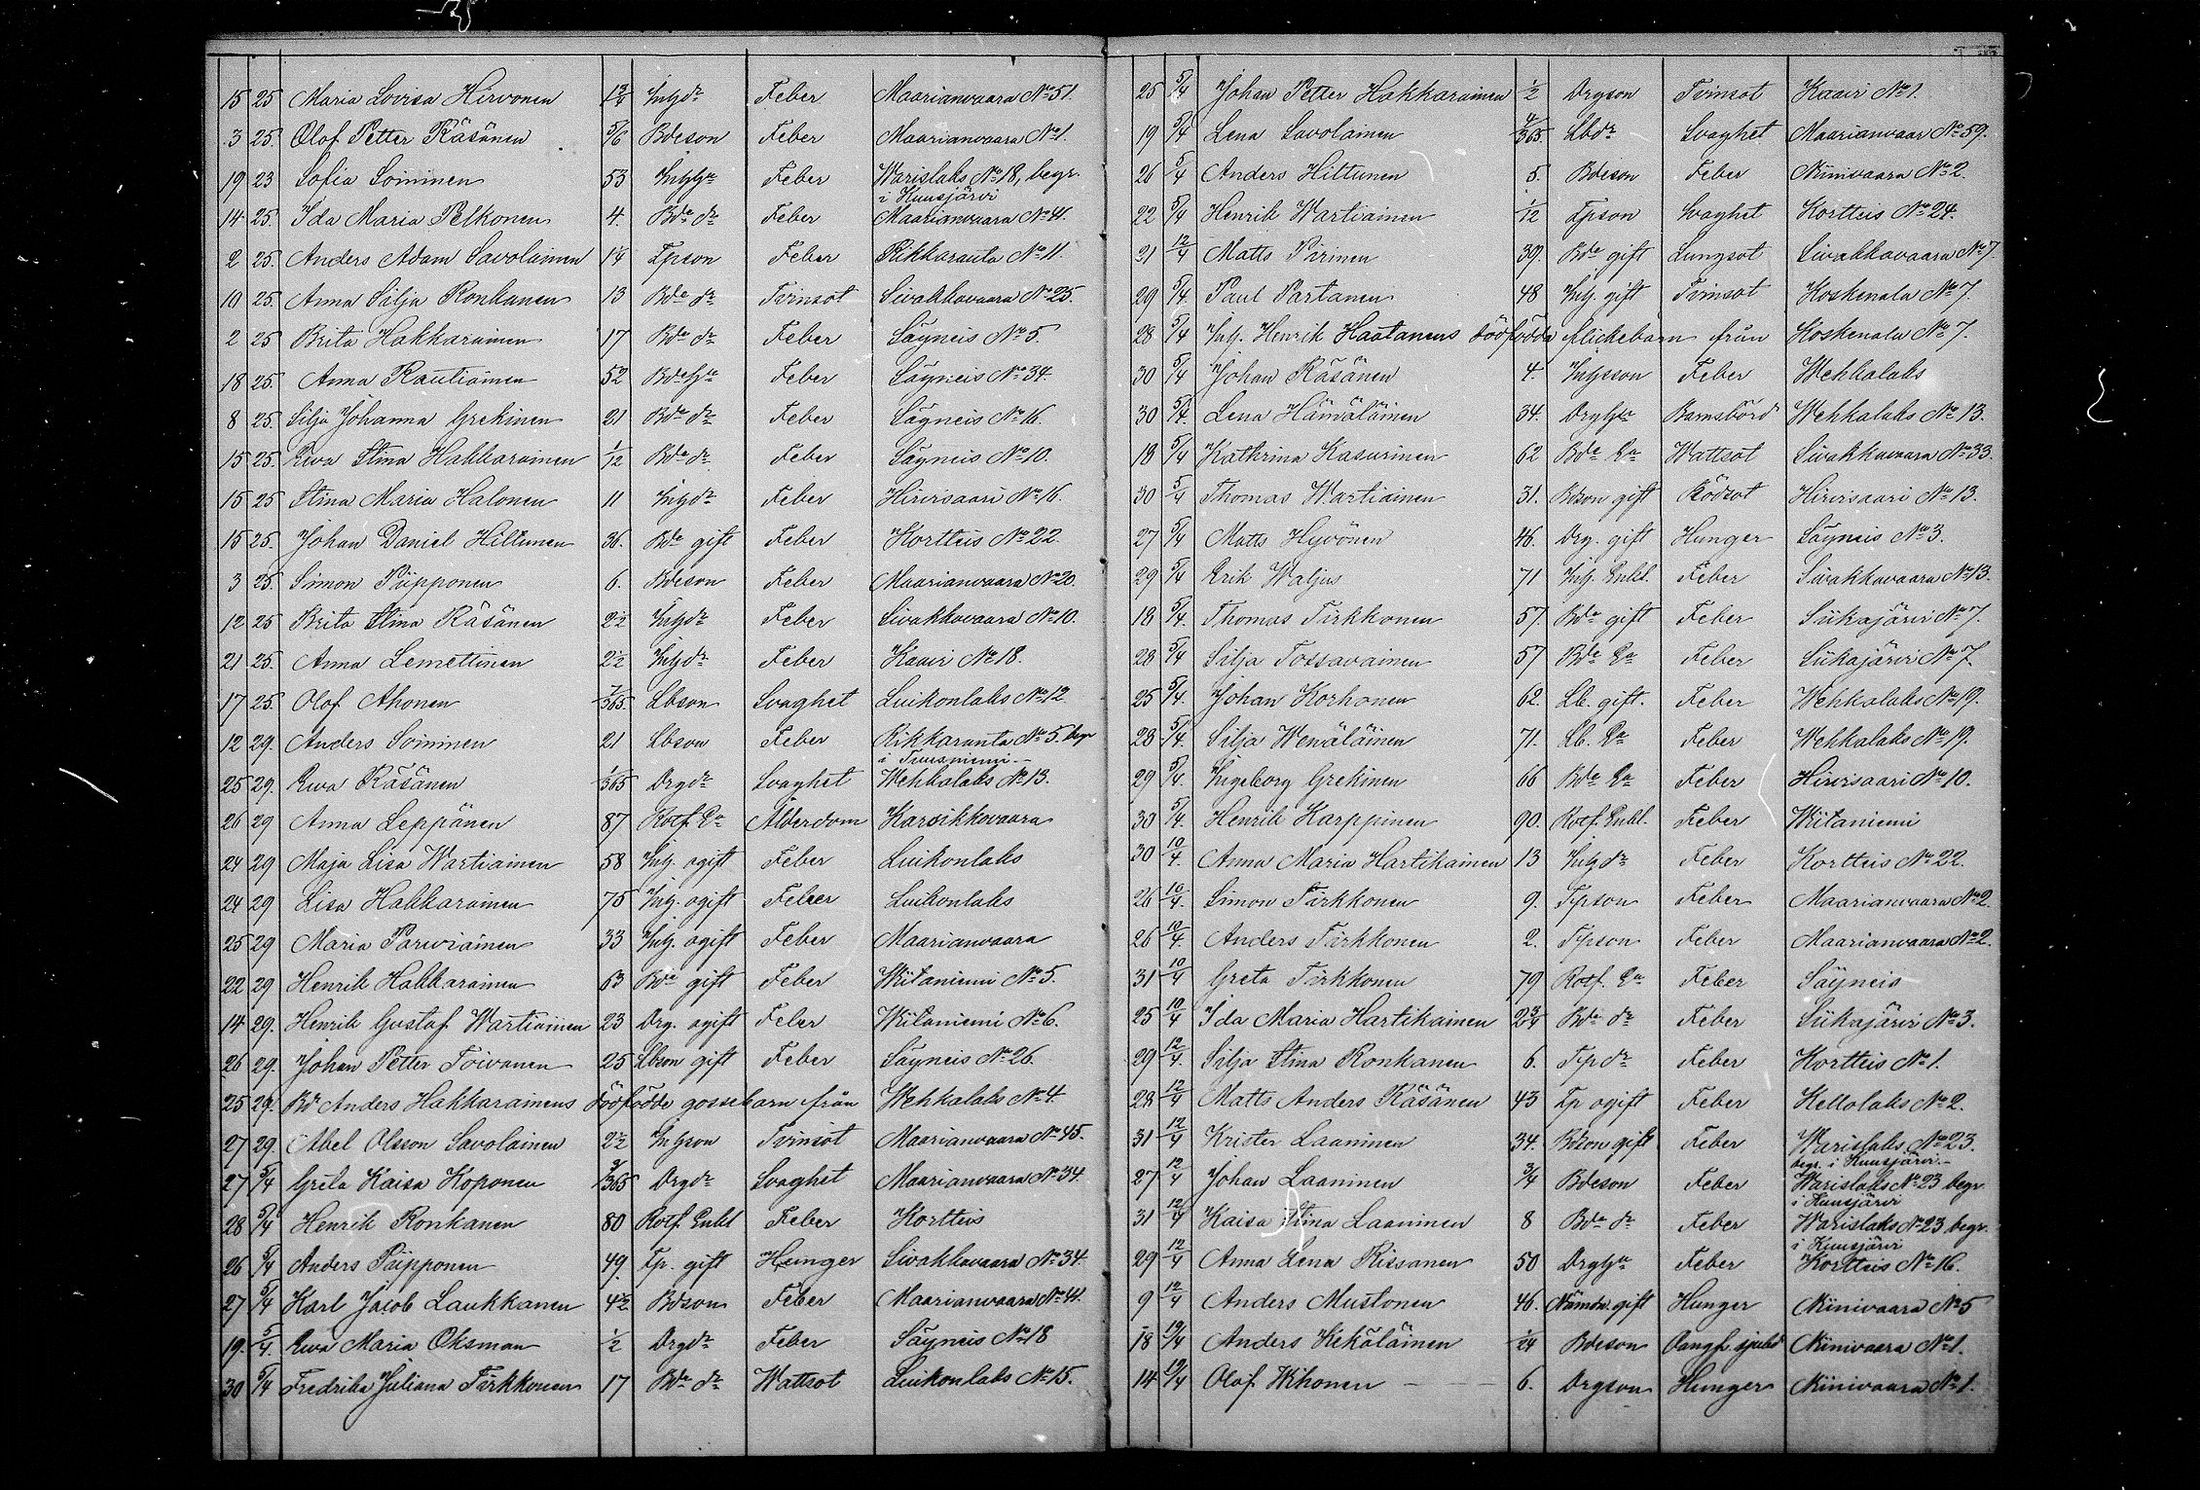 15 25 Maria Lovisa Hirvonen 1 3/4 Inhdr Feber Maarianvaara No 51.
3 25. Olof Petter Räsänen 5/6 Bdeson Feber Maarianvaara No 1.
19 23 Sofia Soininen 53 Feber Warislaks No 18, begr.
i Kuusjärvi
14 25. Ida Maria Pelkonen 4. Bde dr Feber Maarianvaara No 41.
2 25. Anders Adam Savolainen 14 Tpson Feber Rikkaranta No 11.
10 25. Anna Silja Ronkanen 13 Bde dr Tvinsot Sivakkavaara No 25.
2 25 Brita Hakkarainen 17 Bde dr Feber Säyneis No 5.
18 25. Anna Rautiainen 52 Feber Säyneis No 34.
8 25. Silja Johanna Grekinen 21 Bde dr Feber Säyneis No 16.
15 25. Ewa Stina Hakkarainen 1/12 Bde dr Feber Säyneis No 10.
15 25 Stina Maria Halonen 11 Inhdr Feber Hirvisaari No 16.
15 25. Johan Daniel Hiltunen 36. Bde gift Feber Kortteis No 22.
3 25. Simon Piipponen 6. Bdeson Feber Maarianvaara No 20.
12 25 Brita Stina Räsänen 2 1/2 Inhdr Feber Sivakkavaara No 10.
21 25. Anna Lemettinen 2 1/2 Inhdr Feber Kaavi No 18.
17 25. Olof Ahonen 7/365 Lbson Svaghet Luikonlaks No 12
12 29. Anders Soininen 21 Lbson Feber Rikkaranta No 5. begr
i Tuusniemi.-
25 29. Ewa Räsänen 1/365 Drgdr Svaghet Wehkalaks No 13.
26 29 Anna Leppänen 87 Rotf. Ea Ålderdom Karsikkovaara
24 29 Maja Lisa Wartiainen 58 Inh. ogift Feber Luikonlaks
24 29 Lisa Hakkarainen 75 Inh. ogift Feber Luikonlaks
25 29 Maria Parviainen 33 Inh. ogift Feber Maarianvaara
22 29 Henrik Hakkarainen 63 Bde gift Feber Wiitaniemi No 5.
14 29. Henrik Gustaf Wartiainen 23 Drg. ogift Feber Wiitaniemi No 6.
26 29. Johan Petter Toivanen 25 Lbson gift Feber Säyneis No 26.
25 29. Bd Anders Hakkarainens dödfödde gossebarn från Wehkalaks No 4.
27 29. Abel Olsson Savolainen 2 1/2 Inhson Tvinsot Maarianvaara No 45.
27 5/4 Greta Kaisa Koponen Drgdr Svaghet Maarianvaara No 34.
28 5/4 Henrik Ronkanen 80 Rotf. Enkl Feber Kortteis
26 5/4 Anders Piipponen 49. Tp. gift Hunger Sivakkavaara No 34.
27 5/4 Karl Jacob Laukkanen 4 1/2 Bdson Feber Maarianvaara No 44.
19. 5/4. Ewa Maria Oksman 1/2 Drgdr Feber Säyneis No 18
30 5/4 Fredrika Juliana Tirkkonen 17 Bde dr Wattsot Luikonlaks No 15.
25 5/4 Johan Petter Hakkarainen 1/2 Drgson Tvinsot Kaavi No 1.
19 5/4 Lena Savolainen 4/365. Lbdr Svaghet Maarianvaar No 59.
26 5/4 Anders Hiltunen 5. Bdeson Feber Niinivaara No 2.
22 5/4 Henrik Wartiainen 1/12 Tpson Svaghet Kortteis No 24.
21 12/4 Matts Pirinen 39. Bde gift Lungsot Sivakkavaara No 7.
29 5/4. Paul Partanen 48 Inh. gift Tvinsot Koskenala No 7.
28 5/4 Inh. Henrik Haatanens dödfödda flickebarn från Koskenala No 7.
30 5/4 Johan Räsänen 4. Inhson Feber Wehkalaks
30 5/4. Lena Hämäläinen 34. Barnsbörd Wehkalaks No 13.
18 5/4 Kathrina Kasurinen 62 Bde Ea Wattsot Sivakkavaara No 33.
30 5/4 Thomas Wartiainen 31. Bdson gift Rödsot Hirvisaari No 13.
27 5/4 Matts Hyvönen 46. Drg. gift Hunger Säyneis No 3.
29 5/4 Erik Waljus 71 Inh. Enkl. Feber Sivakkavaara No 13.
18 5/4. Thomas Tirkkonen 57. Bde gift Feber Siikajärvi No 7.
28 5/4 Silja Tossavainen 57 Bde Ea Feber Siikajärvi No 7.
25 5/4. Johan Korhonen 62. Lb. gift. Feber Wehkalaks No 19.
28 5/4. Silja Wenäläinen 71. Lb. Ea Feber Wehkalaks No 19.
29 5/4. Ingeborg Grekinen 66 Bde Ea Feber Hirvisaari No 10.
30 5/4. Henrik Karppinen 90. Rotf. Enkl. Feber Wiitaniemi
30 10/4. Anna Maria Hartikainen 13 Inhdr Feber Kortteis No 22.
26 10/4. Simon Tirkkonen 9. Tpson Feber Maarianvaara No 2.
26 10/4. Anders Tirkkonen 2. Tpson Feber Maarianvaara No 2.
31 10/4 Greta Tirkkonen 79 Rotf. Ea Feber Säyneis
25 10/4 Ida Maria Hartikainen 2 3/4 Bde dr Feber Siikajärvi No 3.
29 12/4. Silja Stina Ronkanen 6. Tpdr Feber Kortteis No 1.
28 12/4 Matts Anders Räsänen 43 Tp ogift Feber Kellolaks No 2.
31 12/4 Krister Laaninen 34. Bdson gift Feber Warislaks No 23.
begr. i Kuusjärvi.-
27 12/4 Johan Laaninen 3/4 Bdeson Feber Warislaks No 23 begr.
i Kuusjärvi
31 12/4 Kaisa Stina Laaninen 8 Bde dr Feber Warislaks No 23 begr.
i Kuusjärvi
29 12/4 Anna Lena Rissanen 50 Feber Kortteis No 16.
9 12/4 Anders Mustonen 46. Nämdm. gift Hunger Niinivaara No 5
18 19/4 Anders Kekäläinen 1/24 Bdeson Niinivaara No 1.
14 19/4 Olof Wihonen 6. Drgson Hunger Niinivaara No 1.